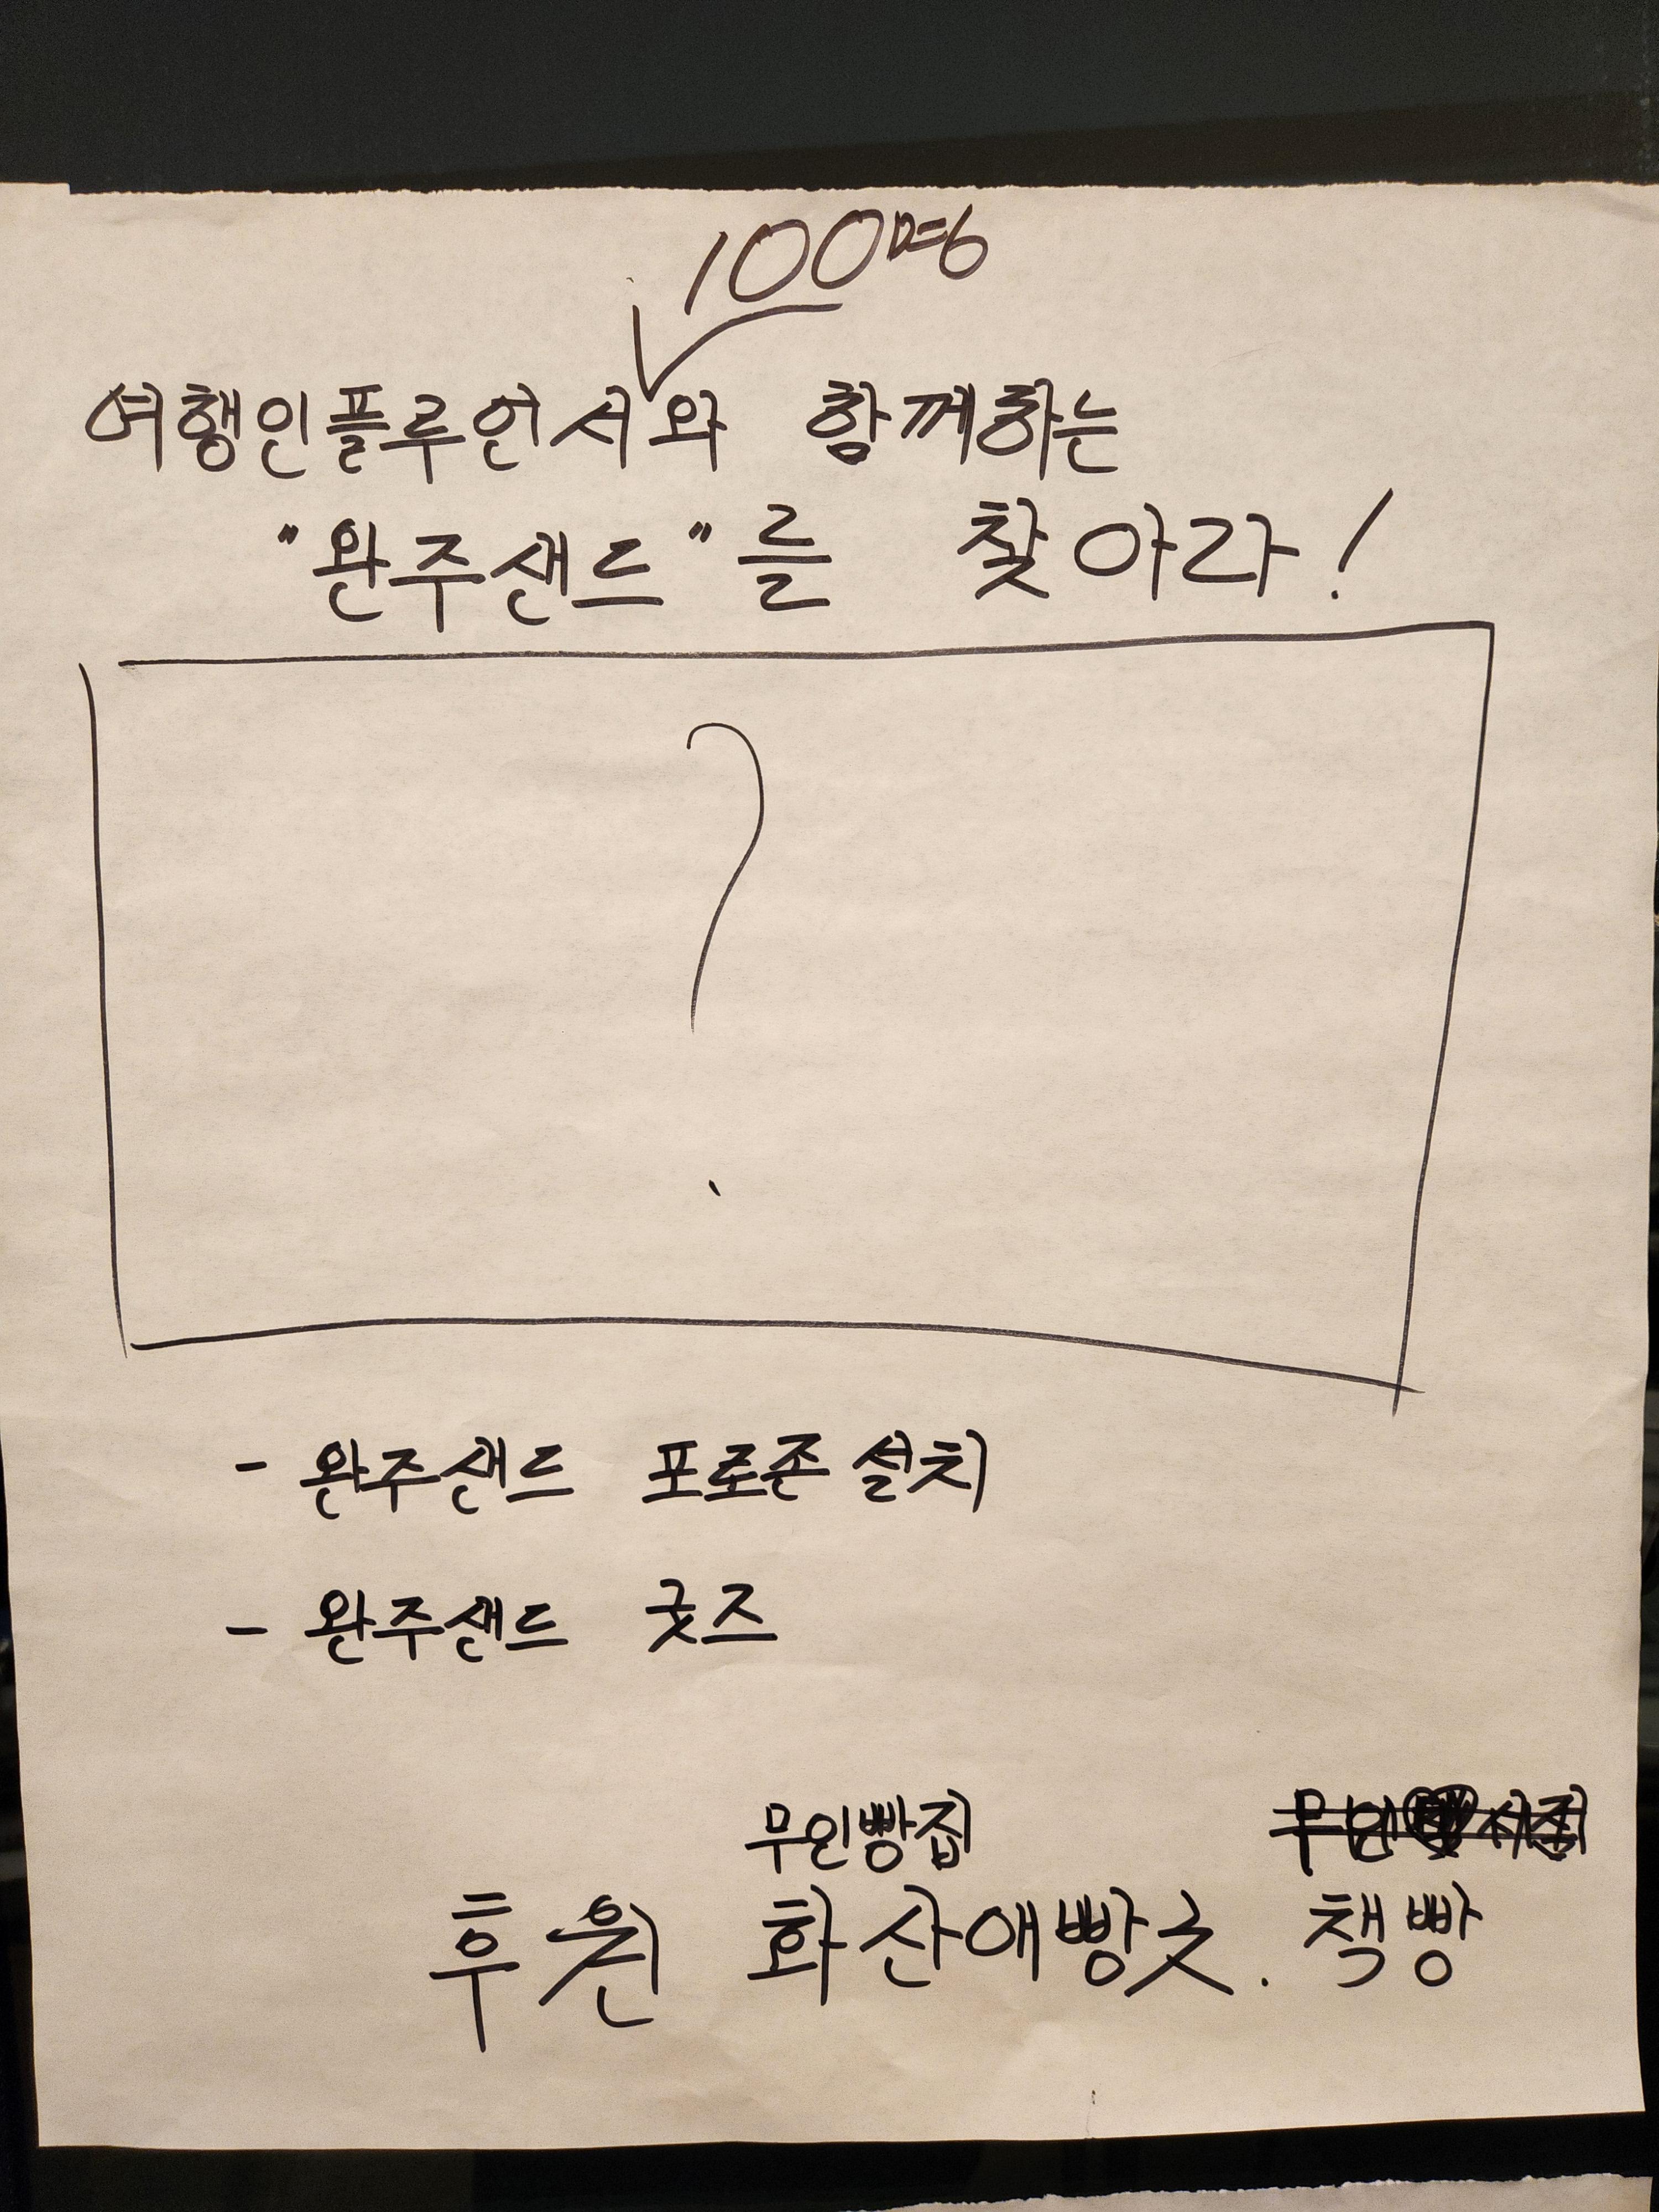 100명
여행인플루언서와 함께하는
"완주샌드"를 찾아라!
?
- 완주샌드 포로존 설치
- 완주샌드 굿즈
무인빵집
후원 화산애빵긋. 책빵